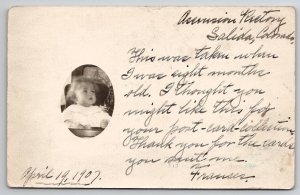 Ascension Rectory
Salida, Colorado.
This was taken when
I was eight months
old. I thought you
might like this for
your post-card collection
Thank you for the cards
you sent me.
Frances.
April 19, 1907.